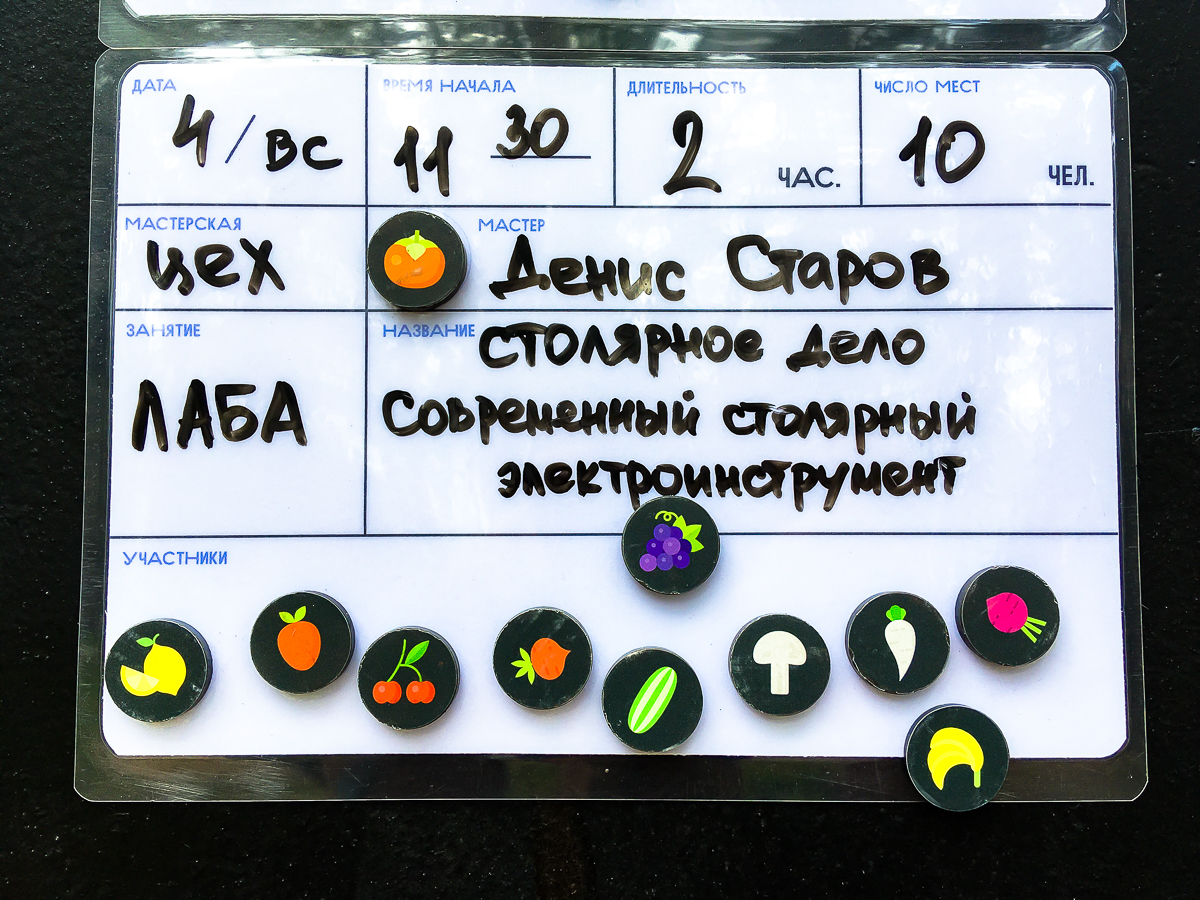 ДАТА
4/вс
ВРЕМЯ НАЧАЛА
11 30
ДЛИТЕЛЬНОСТЬ
2 ЧАС.
ЧИСЛО МЕСТ
10 ЧЕЛ.
МАСТЕРСКАЯ
цех
МАСТЕР
Денис Старов
ЗАНЯТИЕ
ЛАБА
НАЗВАНИЕ
столярное дело
Современный столярный
электроинструмент
УЧАСТНИКИ